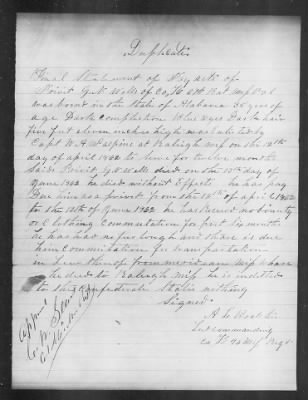 Duplicate
Final Statement of Pay acts of
Privit G W Wells of Co, H 40th Rat Mip Vol
was born in the State of Alabama 35 years of
age Dark complection Blue eyes Dark hair
five feet eleven inches high was enlisted by
Capt W A at Raleigh Mip on the 12th
day of april 1862 to Serve for twelve months
Said Privit G W Wells died on the 10th day of
June 1862 he died without Effects he has pay
Due him as a privat from the 12th of april 1862
to the 10th of June 1862 he has received no bounty
or Clothing Commutation for first six months
he has had no furlough and there is due
him Commutation for transportation
in Lieu thereof from meridian mip where
he died to Raleigh Mip he is indetted
to the Confederate States nothing
Signed
A L
Lut commanding
Co 40 Mip Regt